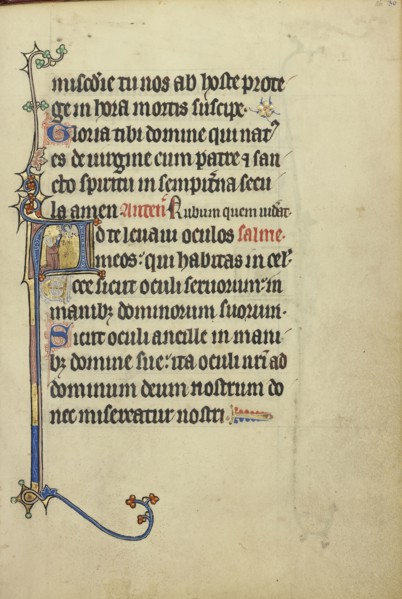 misc̄die tu nos ab hoste prote
ge in hora mortis suscipe.
Gloria tibi domine qui nat᾽
es de uirgine cum patre ⁊ san
cto spiritu in sempit̄na secu
la amen Anteñ Rubum quem uid̄at
Ad te leuaui oculos salme.
meos: qui habitas in cel᾽
Ecce sicut oculi seruorum: in
manibȝ dominorum suorum.
Sicut oculi ancille in mani
bȝ domine sue: ita oculi nr̄i ad
dominum deum nostrum do
nec misereatur nostri